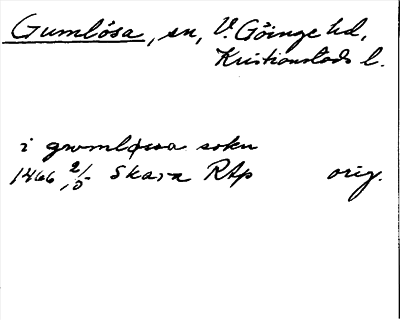 Gumlösa, sn, V. Göinge hd,
Kristianstads l.
i grvmløsa sokn
1466 2/5 Skara Rtp orig.